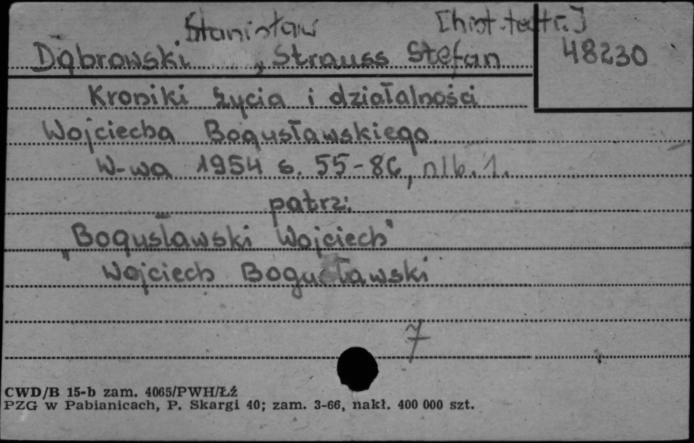 Stanisław [hist. teatr.]
Dąbrowski , Strauss Stefan 48230
Kroniki życia i działalności
Wojciecha Bogusławskiego
W-wa 1954 s. 55-86, nlb. 1.
patrz:
"Bogusławski Wojciech"
Wojciech Bogusławski
7
CWD/B 15-b zam. 4065/PWH/Łż
PZG w Pabianicach, P. Skargi 40; zam. 3-66, nakł. 400 000 szt.